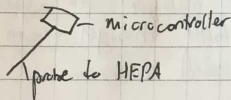 microcontroller
probe to HEPA